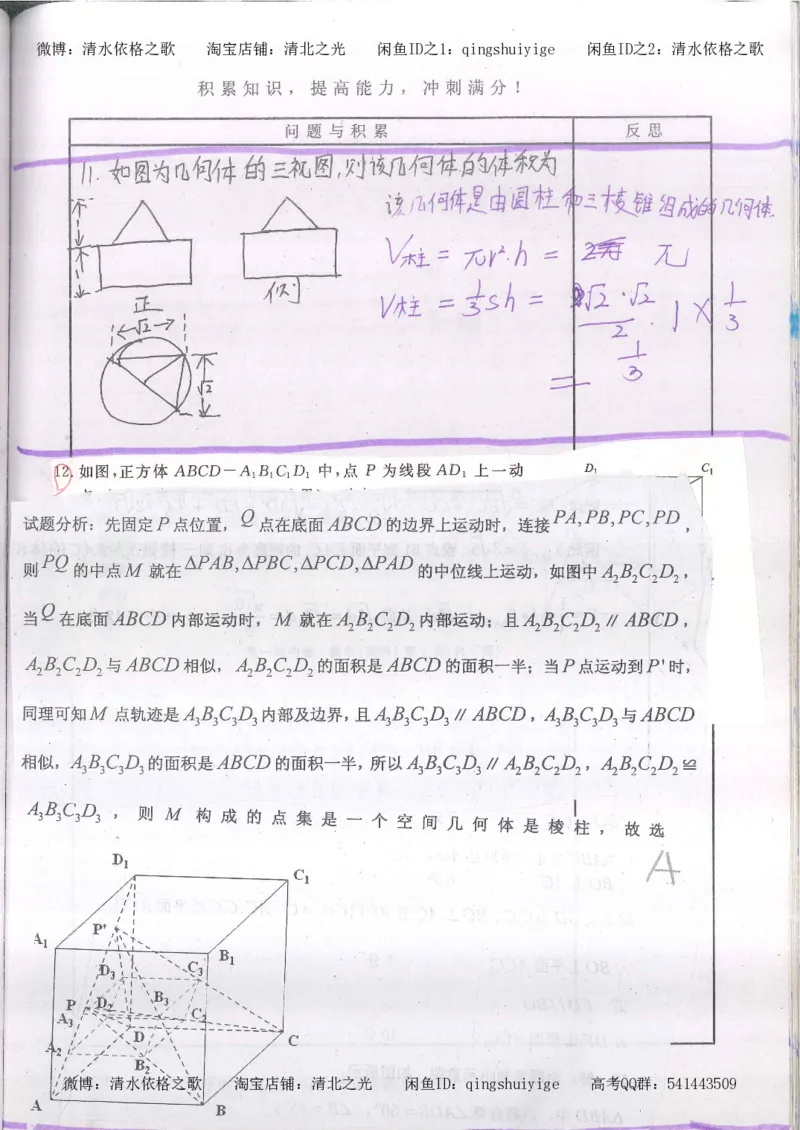 微博：清水依格之歌 淘宝店铺：清北之光 闲鱼ID之1：qingshuiyige 闲鱼ID之2：清水依格之歌
积累知识，提高能力，冲刺满分！
问题与积累 反思
11. 如图为几何体的三视图,则该几何体的体积为
该几何体是由圆柱和三棱锥组成的几何体.
V柱 = πr²·h = π
V柱 = 1/3 sh = √2·√2/2 · 1 × 1/3
= 1/3
正
侧
√2
√2
12. 如图,正方体 ABCD-A₁B₁C₁D₁ 中,点 P 为线段 AD₁ 上一动
D₁ C₁
试题分析：先固定P点位置，Q点在底面ABCD的边界上运动时，连接PA,PB,PC,PD，
则PQ的中点M就在ΔPAB,ΔPBC,ΔPCD,ΔPAD的中位线上运动，如图中A₂B₂C₂D₂，
当Q在底面ABCD内部运动时，M就在A₂B₂C₂D₂内部运动；且A₂B₂C₂D₂∥ABCD，
A₂B₂C₂D₂与ABCD相似，A₂B₂C₂D₂的面积是ABCD的面积一半；当P点运动到P'时，
同理可知M点轨迹是A₃B₃C₃D₃内部及边界，且A₃B₃C₃D₃∥ABCD，A₃B₃C₃D₃与ABCD
相似，A₃B₃C₃D₃的面积是ABCD的面积一半，所以A₃B₃C₃D₃∥A₂B₂C₂D₂，A₂B₂C₂D₂≌
A₃B₃C₃D₃，则M构成的点集是一个空间几何体是棱柱，故选
A
D₁
C₁
P'
A₁
B₁
D₃ C₃
P D₂ B₃
A₃ C₂
D C
A₂
B₂
微博：清水依格之歌 淘宝店铺：清北之光 闲鱼ID：qingshuiyige 高考QQ群：541443509
A B